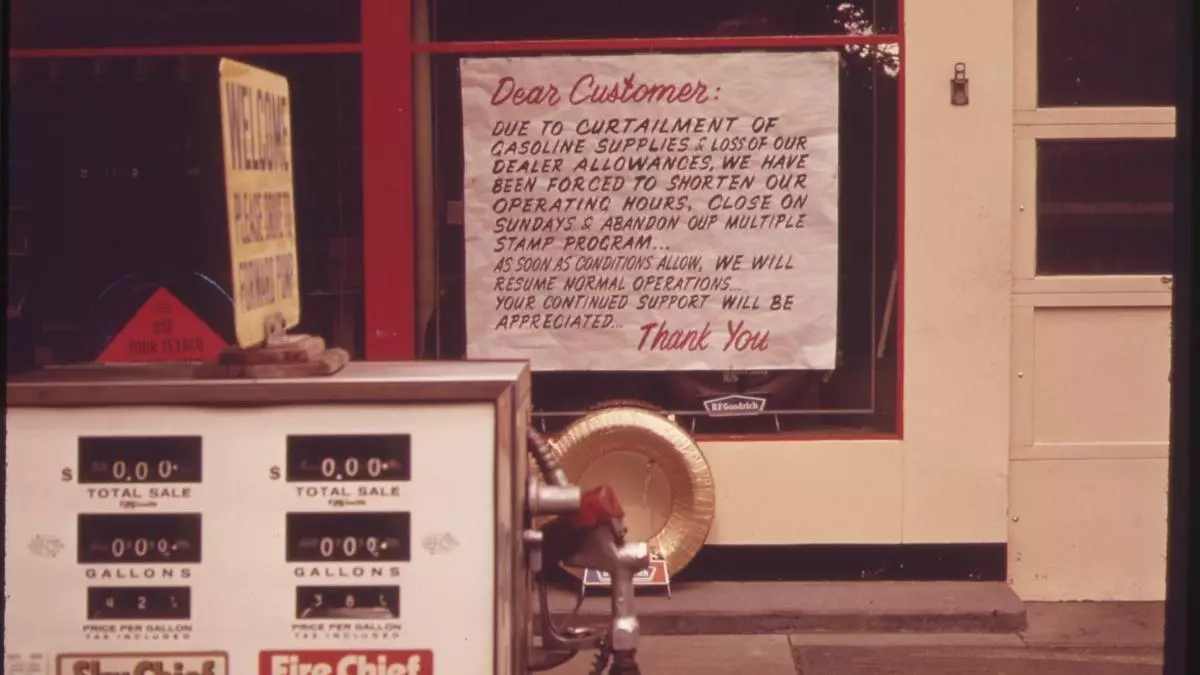 Dear Customer:
DUE TO CURTAILMENT OF
GASOLINE SUPPLIES & LOSS OF OUR
DEALER ALLOWANCES, WE HAVE
BEEN FORCED TO SHORTEN OUR
OPERATING HOURS, CLOSE ON
SUNDAYS & ABANDON OUR MULTIPLE
STAMP PROGRAM...
AS SOON AS CONDITIONS ALLOW, WE WILL
RESUME NORMAL OPERATIONS...
YOUR CONTINUED SUPPORT WILL BE
APPRECIATED...
Thank You
WELCOME
PLEASE
FORWARD PUMP
YOUR TEXACO
B.F.Goodrich
$ 0.00
TOTAL SALE
$ 0.00
TOTAL SALE
000
GALLONS
000
GALLONS
42
PRICE PER GALLON
TAX INCLUDED
38
PRICE PER GALLON
TAX INCLUDED
Sky Chief
Fire Chief